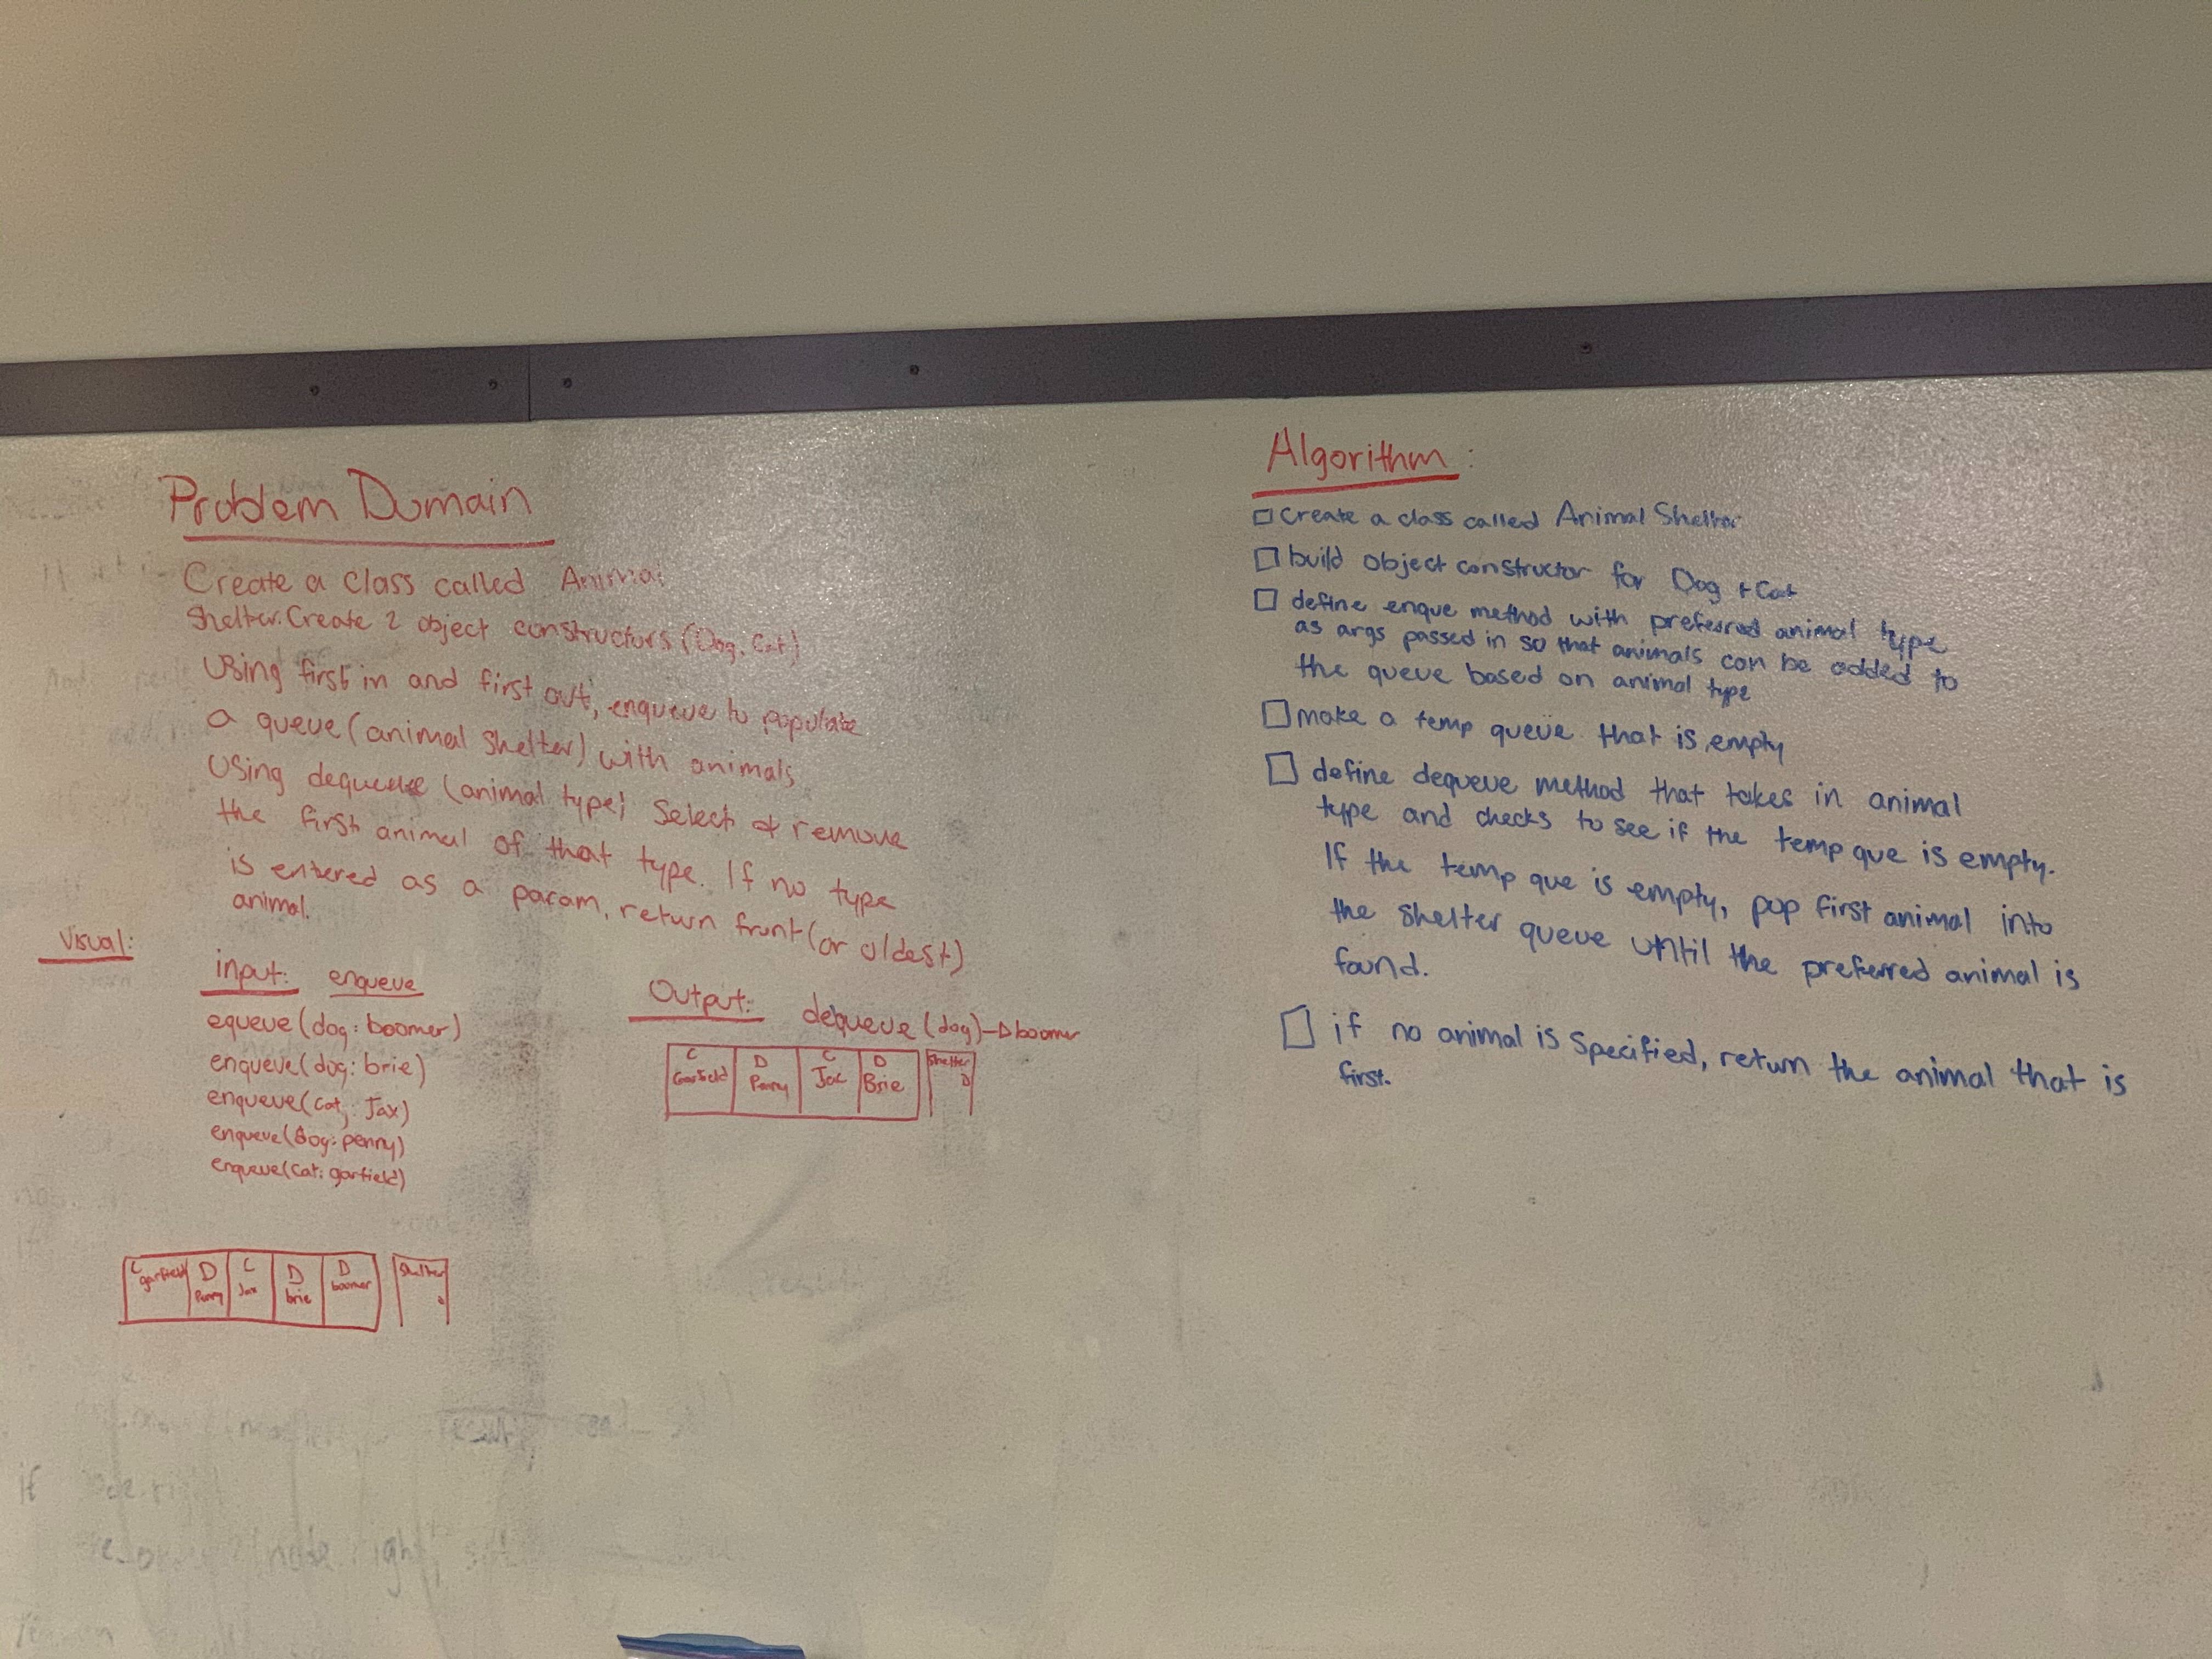 Problem Domain
Create a class called Animal
Shelter. Create 2 object constructors (Dog, Cat)
Using first in and first out, enqueue to populate
a queue (animal shelter) with animals
Using dequeue (animal type) select & remove
the first animal of that type. If no type
is entered as a param, return front (or oldest)
animal.
Visual:
input: enqueue
equeue(dog: boomer)
enqueue(dog: brie)
enqueue(cat: Jax)
enqueue(dog: penny)
enqueue(cat: garfield)
C D C D D shelter
garfield Penny Jax brie boomer
Output: dequeue (dog) → boomer
C D C D shelter
Garfield Penny Jax Brie
Algorithm:
create a class called Animal Shelter
build object constructor for Dog + Cat
define enque method with preferred animal type
as args passed in so that animals can be added to
the queue based on animal type
make a temp queue that is empty
define dequeue method that takes in animal
type and checks to see if the temp que is empty.
If the temp que is empty, pop first animal into
the shelter queue until the preferred animal is
found.
if no animal is specified, return the animal that is
first.
if
node.right